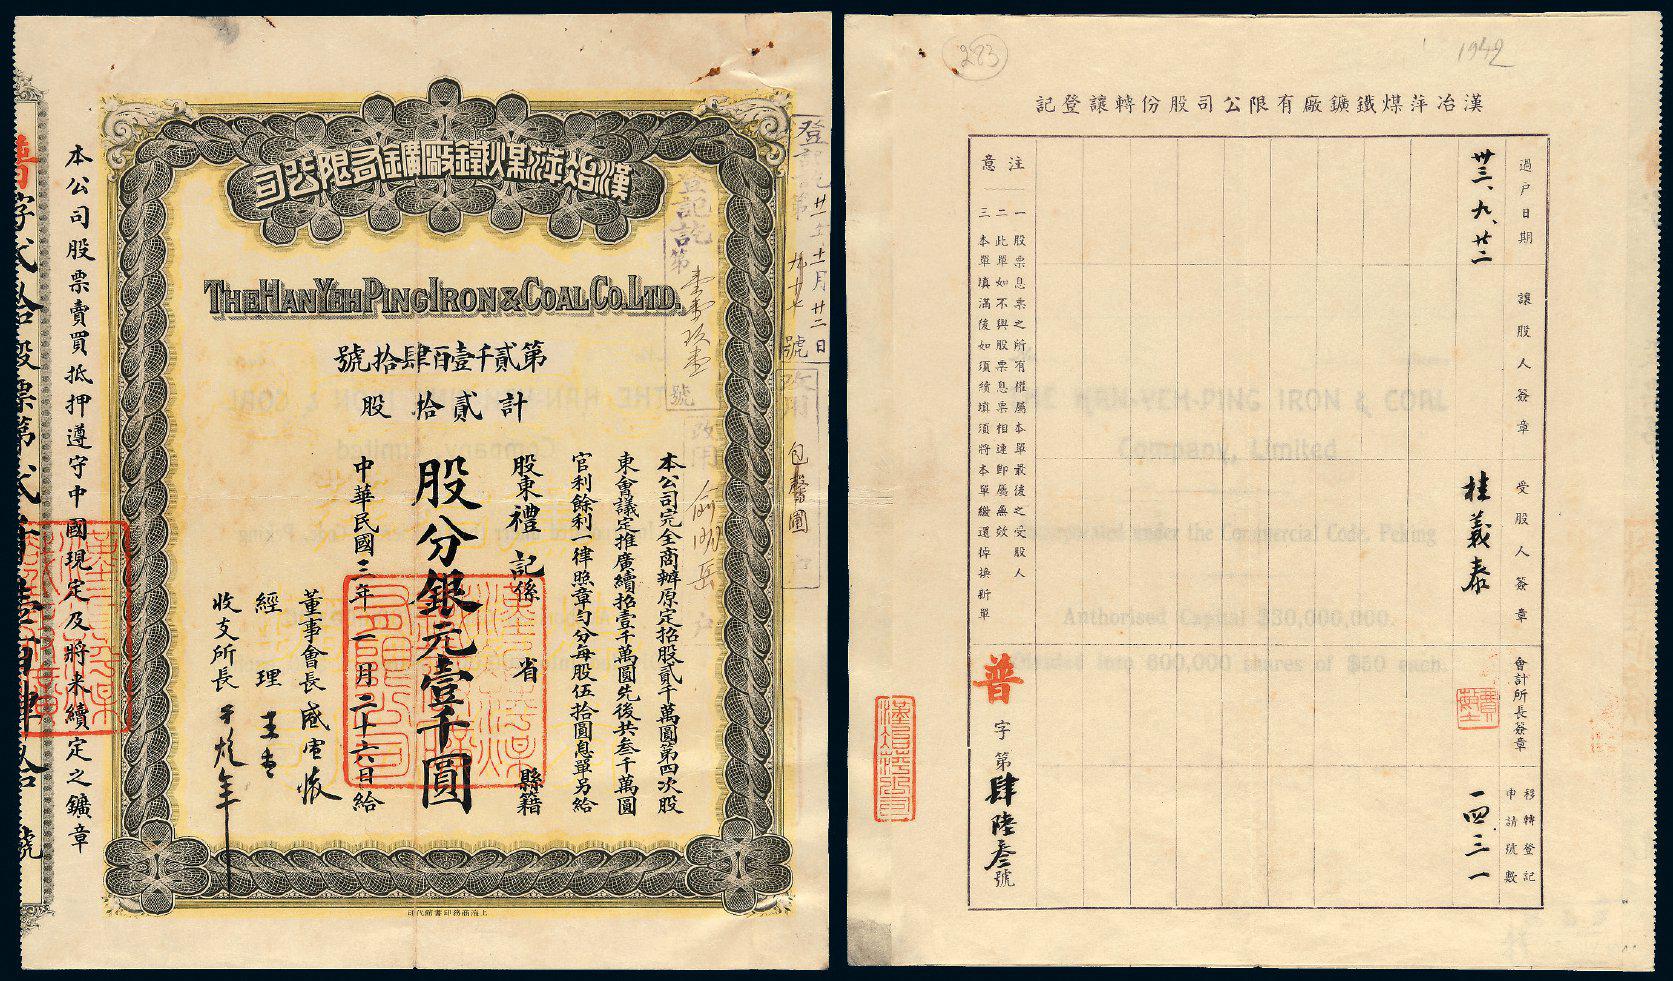 漢冶萍煤鐵廠鑛有限公司
THE HAN YEH PING IRON & COAL CO. LTD.
第貳千壹百肆拾號
計貳拾股
本公司完全商辦原定招股貳千萬圓第四次股
東會議定推廣續招壹千萬圓先後共叁千萬圓
官利餘利一律照章勻分每股伍拾圓息單另給
股東禮記係 省 縣籍
股分銀元壹千圓
中華民國三年一月二十六日給
董事會長盛宣懷
經理
收支所長
本公司股票賣買抵押遵守中國現定及將來續定之鑛章
普字貳拾股票第貳千壹百肆拾號
上海商務印書館代印
登記第
廿一年十一月廿二日
號
改用
包馨圃
登記訖第
號
改用
戶
283
1942
漢冶萍煤鐵鑛廠有限公司股份轉讓登記
過戶日期
讓股人簽章
受股人簽章
會計所長簽章
移轉登記
申請號數
卅三、九、廿二
桂義泰
一四三一
注意
一 股票息票之所有權屬本單最後之受股人
二 此單如不與股票息票相連即屬無效
三 本單填滿後如須續填須將本單繳還倬換新單
普字第肆陸叁號
THE HAN-YEH-PING IRON & COAL
Company, Limited
Incorporated under the Commercial Code, Peking
Authorised Capital $30,000,000.
Divided into 600,000 shares of $50 each